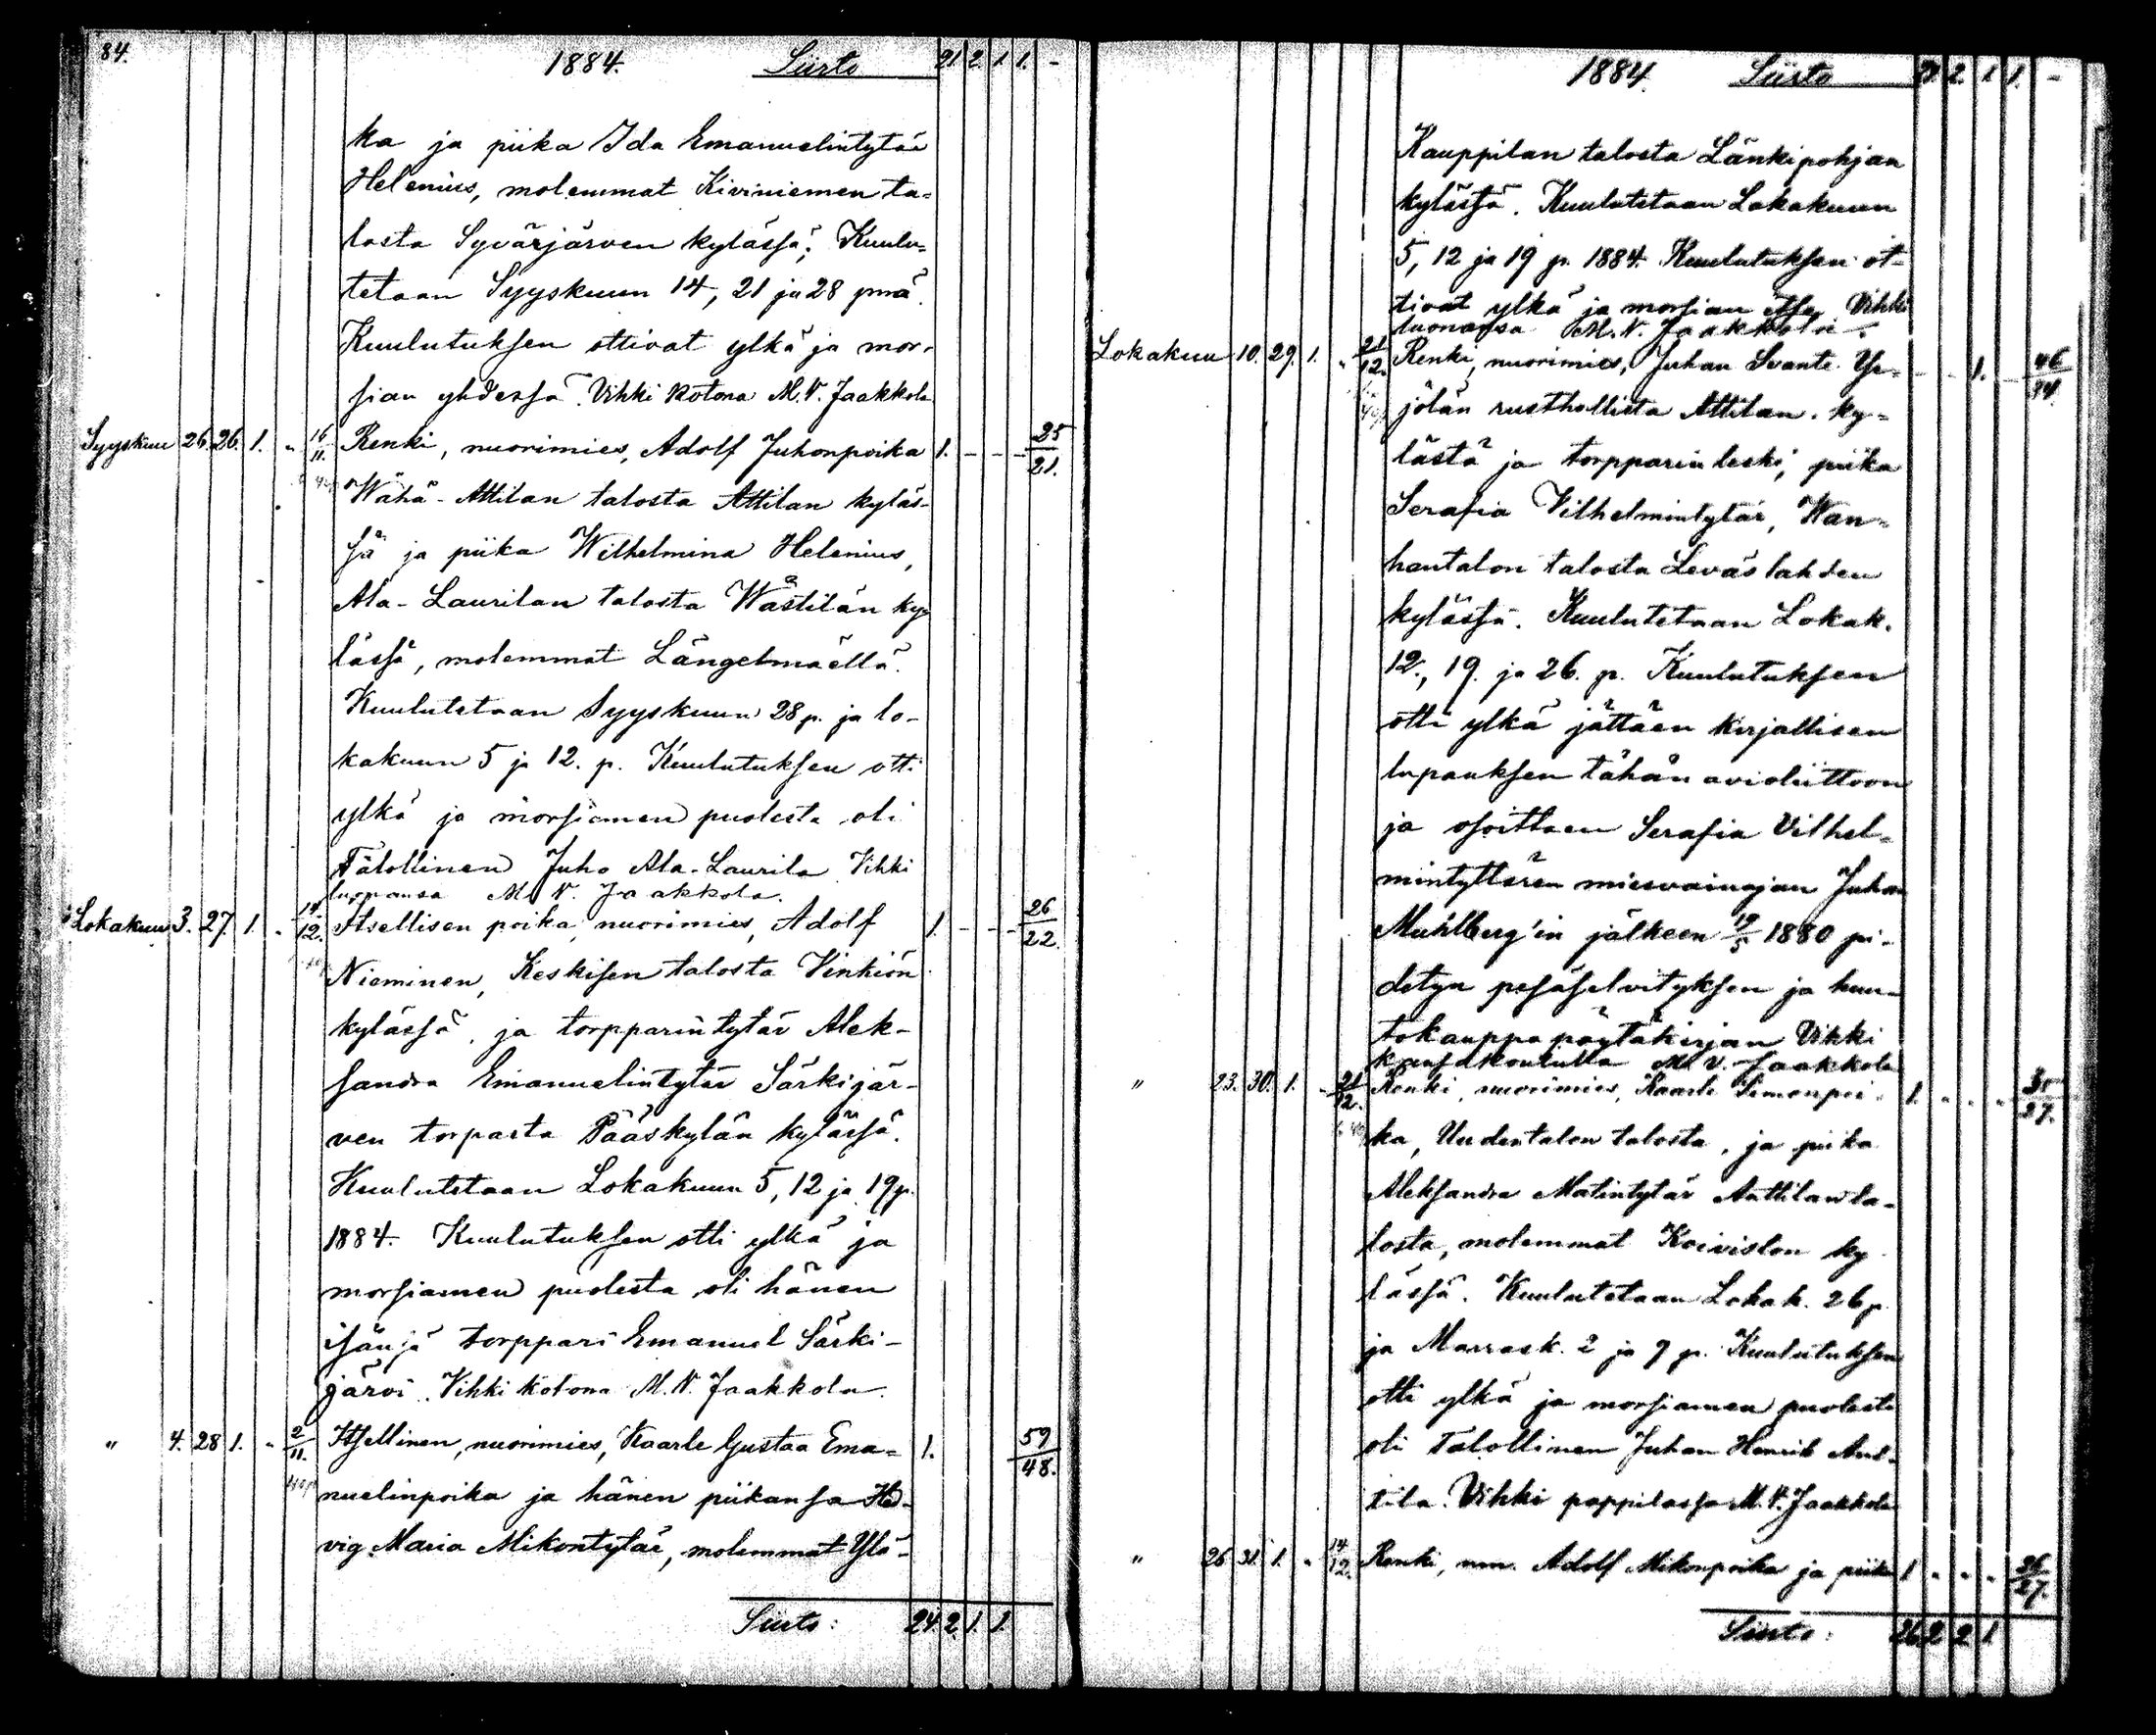 84.
1884. Siirto 21. 2. 1. 1. -
ka ja piika Ida Emanuelintytär
Helenius, molemmat Kiviniemen ta-
losta Syvärjärven kylässä; Kuulu-
tetaan Syyskuun 14, 21 ja 28 pnä.
Kuulutuksen ottivat ylkä ja mor-
sian yhdessä. Vihki kotona M. V. Jaakkola
Syyskuu 26. 26. 1. " 16/11. Renki, nuorimies, Adolf Juhonpoika 1. - - - 25/21.
Wähä-Attilan talosta Attilan kyläs-
sä ja piika Wilhelmina Helenius,
Ala-Laurilan talosta Wästilän ky-
lässä, molemmat Längelmäellä.
Kuulutetaan Syyskuun 28 p. ja lo-
kakuun 5 ja 12. p. Kuulutuksen otti
ylkä ja morsiamen puolesta oli
Talollinen Juho Ala-Laurila Vihki
luonansa M. V. Jaakkola.
Lokakuu 3. 27. 1. " 14/12. Itsellisen poika, nuorimies, Adolf 1. - - - 26/22.
Nieminen, Keskisen talosta Vinkiön
kylässä, ja torpparintytär Alek-
sandra Emanuelintytär Särkijär-
ven torpasta Pääskylän kylässä.
Kuulutetaan Lokakuun 5, 12 ja 19 p.
1884. Kuulutuksen otti ylkä ja
morsiamen puolesta oli hänen
isänsä torppari Emanuel Särki-
järvi. Vihki kotona M. V. Jaakkola.
" 4. 28 1. " 2/11. Itsellinen, nuorimies, Kaarle Gustaa Ema- 1. 59/48.
nuelinpoika ja hänen piikansa Hed-
vig Maria Mikontytär, molemmat Ylä-
Siirto: 24. 2. 1. 1.
1884. Siirto 2. 1. 1. -
Kauppilan talosta Länkipohjan
kylässä. Kuulutetaan Lokakuun
5, 12 ja 19 p. 1884. Kuulutuksen ot-
tivat ylkä ja morsian itse. Vihki
luonansa M. V. Jaakkola.
Lokakuu 10. 29. 1. " 21/12. Renki, nuorimies, Juhan Svante Yr- - - 1. - 46/34.
jölän rusthollista Attilan ky-
lästä ja torpparin leski, piika
Serafia Vilhelmintytär, Wan-
hantalon talosta Leväslahden
kylässä. Kuulutetaan Lokak.
12., 19. ja 26. p. Kuulutuksen
otti ylkä jättäen kirjallisen
lupauksen tähän avioliittoon
ja osoittaen Serafia Vilhel-
mintyttären miesvainajan Juhan
Muhlberg'in jälkeen 19/5 1880 pi-
detyn pesäselvityksen ja huu-
tokauppa pöytäkirjan Vihki
kansakoululla M. V. Jaakkola
" 23. 30. 1. " 21/12. Renki, nuorimies, Kaarle Simonpoi- 1. " " " 35/27.
ka, Uudentalon talosta, ja piika
Aleksandra Matintytär Anttilan ta-
losta, molemmat Koiviston ky-
lässä. Kuulutetaan Lokak. 26 p.
ja Marrask. 2 ja 9 p. Kuulutuksen
otti ylkä ja morsiamen puolesta
oli Talollinen Juhan Henrik Ant-
tila. Vihki pappilassa M. V. Jaakkola
" 26 31. 1. " 14/12. Renki, nm. Adolf Mikonpoika ja piika 1 " " "
Siirto: 26 2 2 1